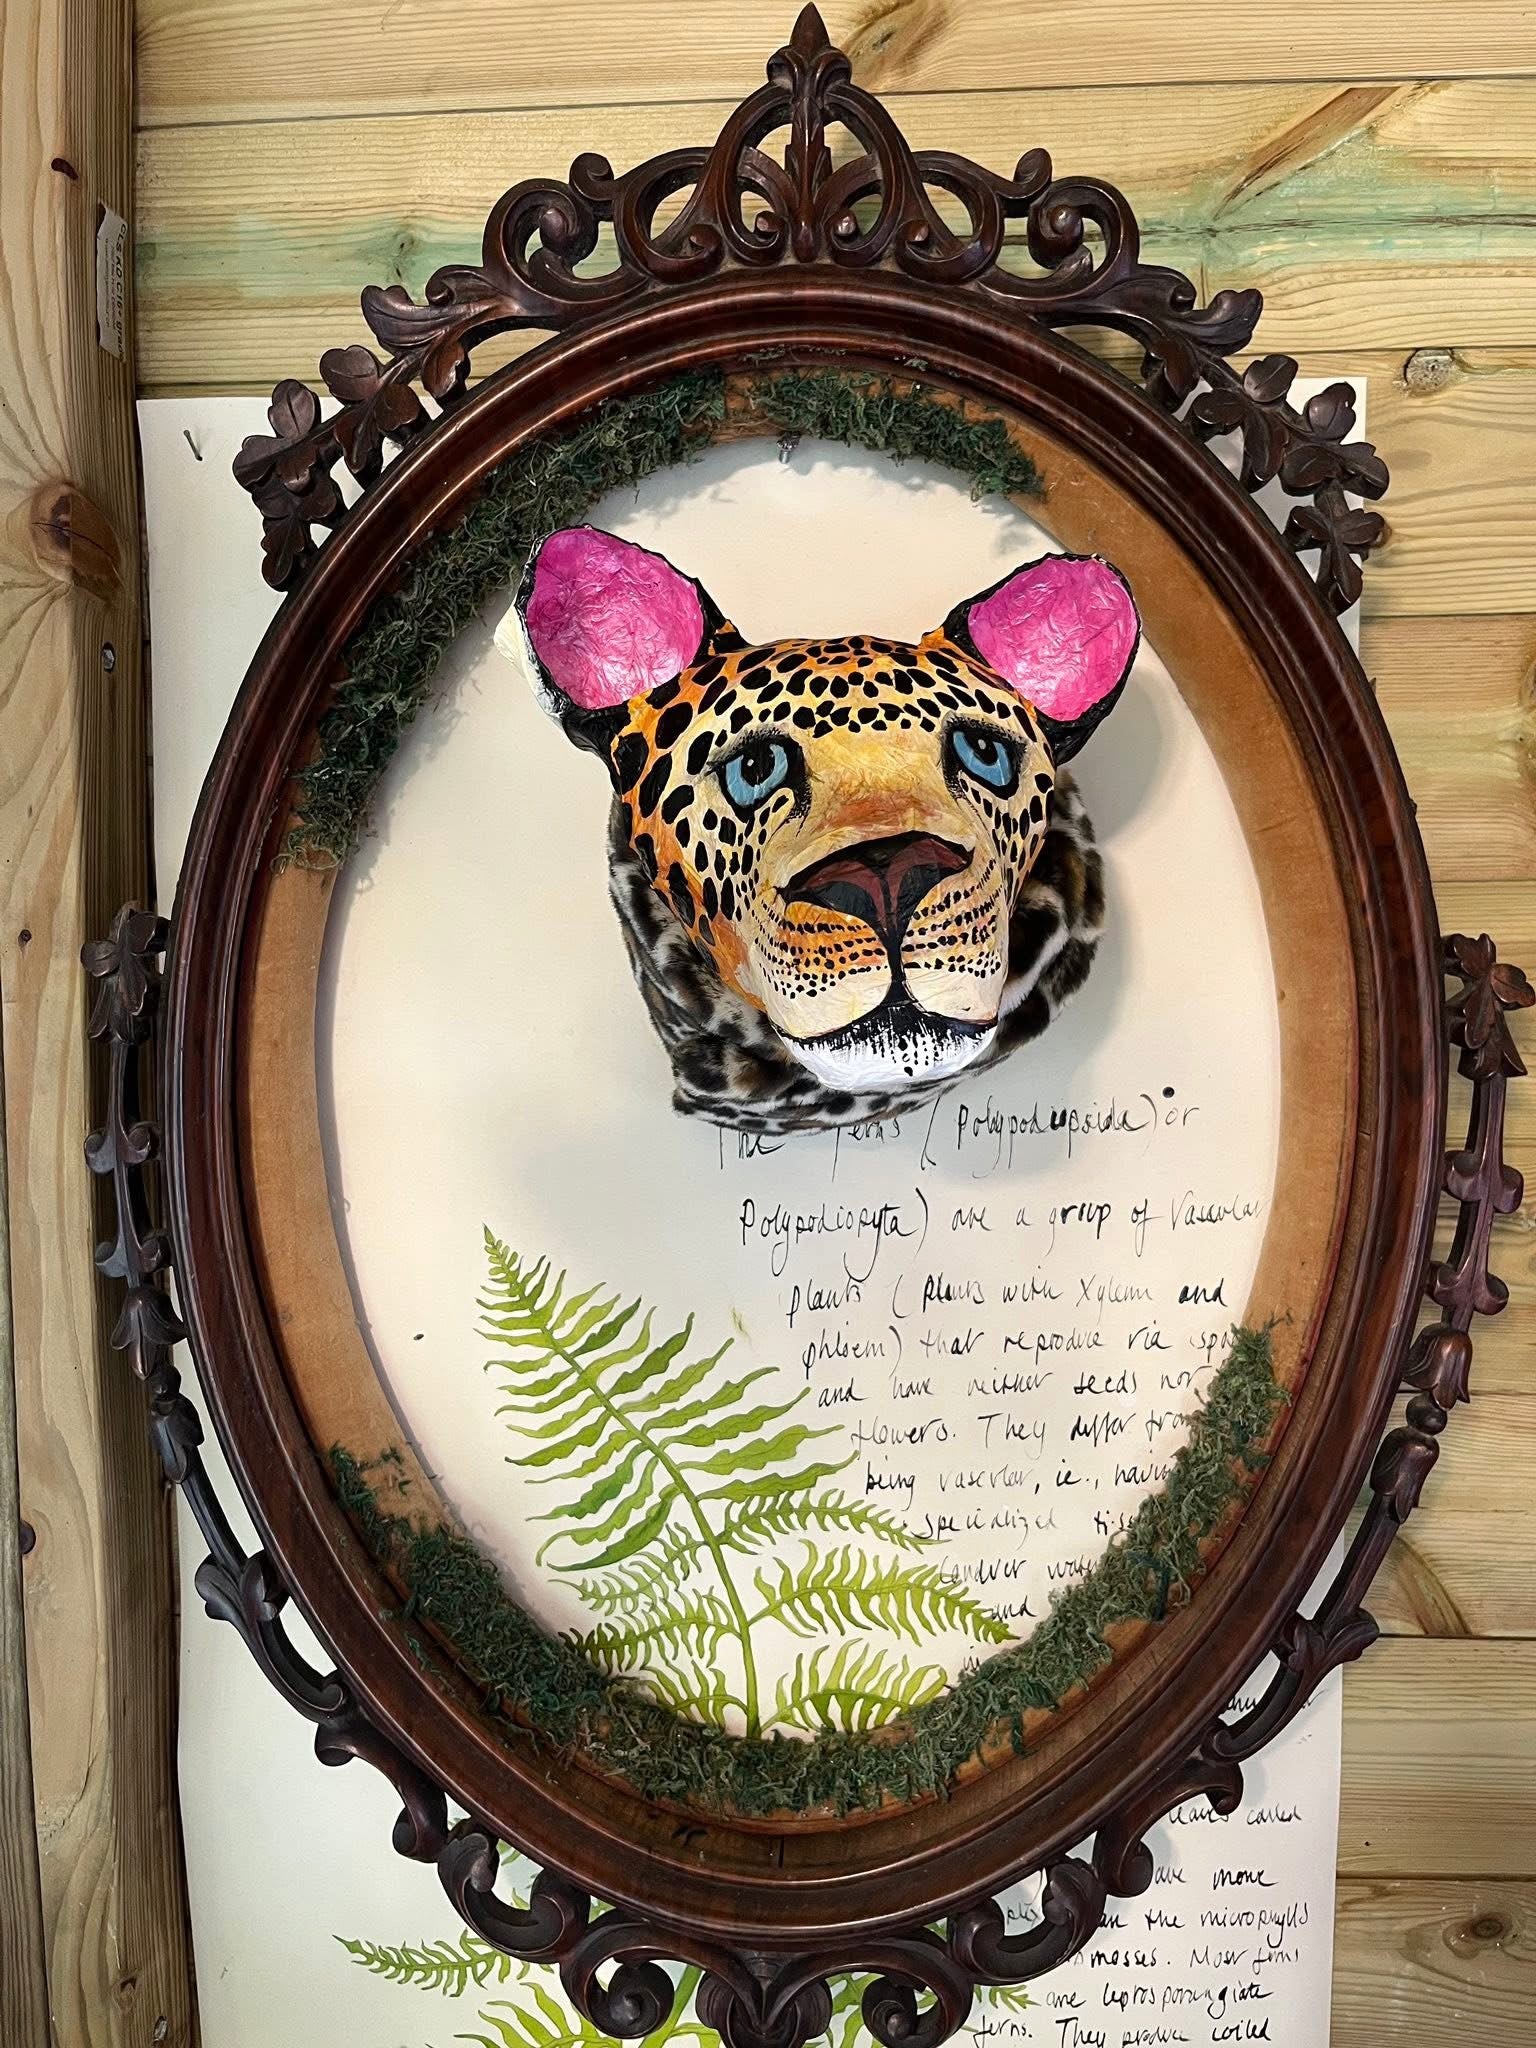 CLS-KD C16+ grade
The ferns (Polypodiopsida) or
Polypodiopyta) are a group of Vascular
plants (plants with Xylem and
phloem) that reproduce via
and have neither seeds nor
flowers. They differ
being vascular, ie.,
specialized
and
leaves called
have more
than the microphylls
mosses. Most ferns
are leptosporangiate
ferns. They produce coiled